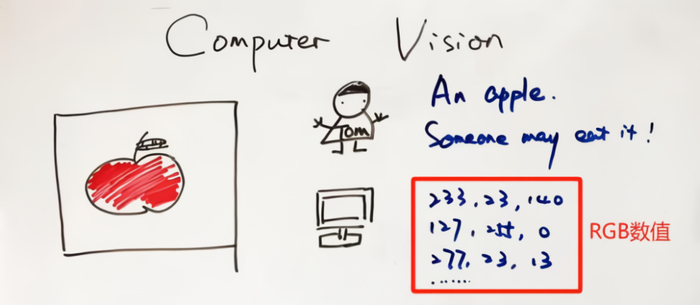 Computer Vision
An apple.
Tom
Someone may eat it!
233, 23, 140
127, 255, 0
277, 23, 13
......
RGB数值